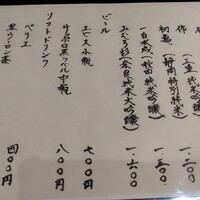 作 (三重 純米吟醸) 一、二〇〇
初亀 (静岡 特別純米) 一、三〇〇
一白水成 (秋田 純米吟醸) 一、五〇〇
みむろ杉 (奈良 純米大吟醸) 一、六〇〇
ビール
エビス小瓶 七〇〇円
サッポロ黒ラベル中瓶 八〇〇円
ソフトドリンク
ペリエ
黒ウーロン茶 四〇〇円